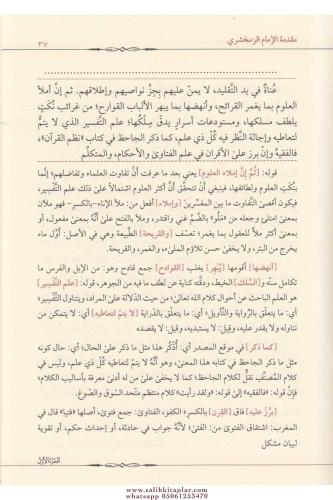 مقدمة الإمام الزمخشري
٣٧
عُناةٌ في يد التَّقليد، لا يمنّ عليهم بِجزّ نواصيهم وإطلاقهم. ثم إنَّ أملأ
العلوم بما يغمر القرائح، وأنهضها بما يبهر الألباب القوارح؛ من غرائب نُكَتٍ
يلطف مسلكها، ومستودعات أسرارٍ يدقّ سِلكُها؛ علم التَّفسير الذي لا يتمّ
لتعاطيه وإجالة النَّظر فيه كُلّ ذي علم، كما ذكر الجاحظ في كتاب «نظم القرآن»،
فالفقيهُ وإن برز على الأقران في علم الفتاوىٰ والأحكام، والمتكلِّم
قوله: [ثُمَّ إِنَّ إملاء العلوم] يعني بعد ما عرفت أنَّ تفاوت العلماء وتفاضلهم؛ إنَّما
بنُكَتِ العلوم ولطائفها، فينبغي أن تتحقَّق أنَّ أكثر العلوم اشتمالاً علىٰ ذلك علم التَّفسير،
فيكون أقصىٰ التَّفاوت ما بين المفسِّرين [وإملاء] أفعل من: ملأ الإناء –بالكسر– فهو ملآن
بمعنىٰ امتلئ وجعله من «مَلُؤ» بالضَّمِّ غني واقتدر، وملأ بالفتح علىٰ أنَّه بمعنىٰ مفعول، أو
بمعنىٰ أكثر ملأً للعقول بما يغمر؛ تعسّف [والقريحة] الطَّبيعة وهي في الأصل: أوَّل ماء
يخرج من البئر، ولا يخفىٰ حسن تلاؤم المليء، والغمر، والقريحة.
[أنهضها] أقومها [يُبهر] يغلب [القوارح] جمع قادح وهو: من الإبل والفرس ما
تكامل سنّه و[السِّلك] الخيط، ودقَّته كناية عن لطف ما فيه من الجوهر، قوله: [علم التَّفسير]
هو العلم الباحث عن أحوال كلام الله تعالىٰ؛ من حيث الدَّلالة علىٰ المراد، ويتناول التَّفسير؛
أي: ما يتعلَّق بالرِّواية والتَّأويل؛ أي: ما يتعلَّق بالدِّراية [لا يتمّ لتعاطيه] أي: لا يتمكن من
تناوله ولا يقدر عليه، وقيل: لا يستبديه، وقيل: لا يقصده
[كما ذكر] في موقع المصدر أي: أذْكُر هذا مثل ما ذكر علىٰ الحال؛ أي: حال كونه
مثل ما ذكر الجاحظ في كتابه هذا المعنىٰ، وهو أنَّه لا يتمّ لتعاطيه كُلّ ذي علم، وليس في
كلام المصنِّف نقلٌ لكلام الجاحظ؛ كما لا يخفىٰ علىٰ من له أدنىٰ معرفة بأساليب الكلام؛
فإنَّ قوله: «فالفقيه» إلىٰ قوله: «ولقد رأيت» كلام منتظم متَّحد السوق والصّوغ.
[برَّز عليه] فاق [القِرن] بالكسر: الكفؤ، الفتاوىٰ: جمع فتوىٰ، أصلها «فتيا» قال في
المغرب: اشتقاق الفتوىٰ من: الفتىٰ؛ لأنَّه جواب في حادثة، أو إحداث حكم، أو تقوية
لبيان مشكل
الجُزءُ الأوَّل
www.salihkitaplar.com
whatsapp 05061253470